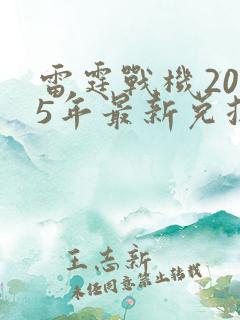 雷霆戰機20
5年最新兑
王志新
未经同意禁止转载